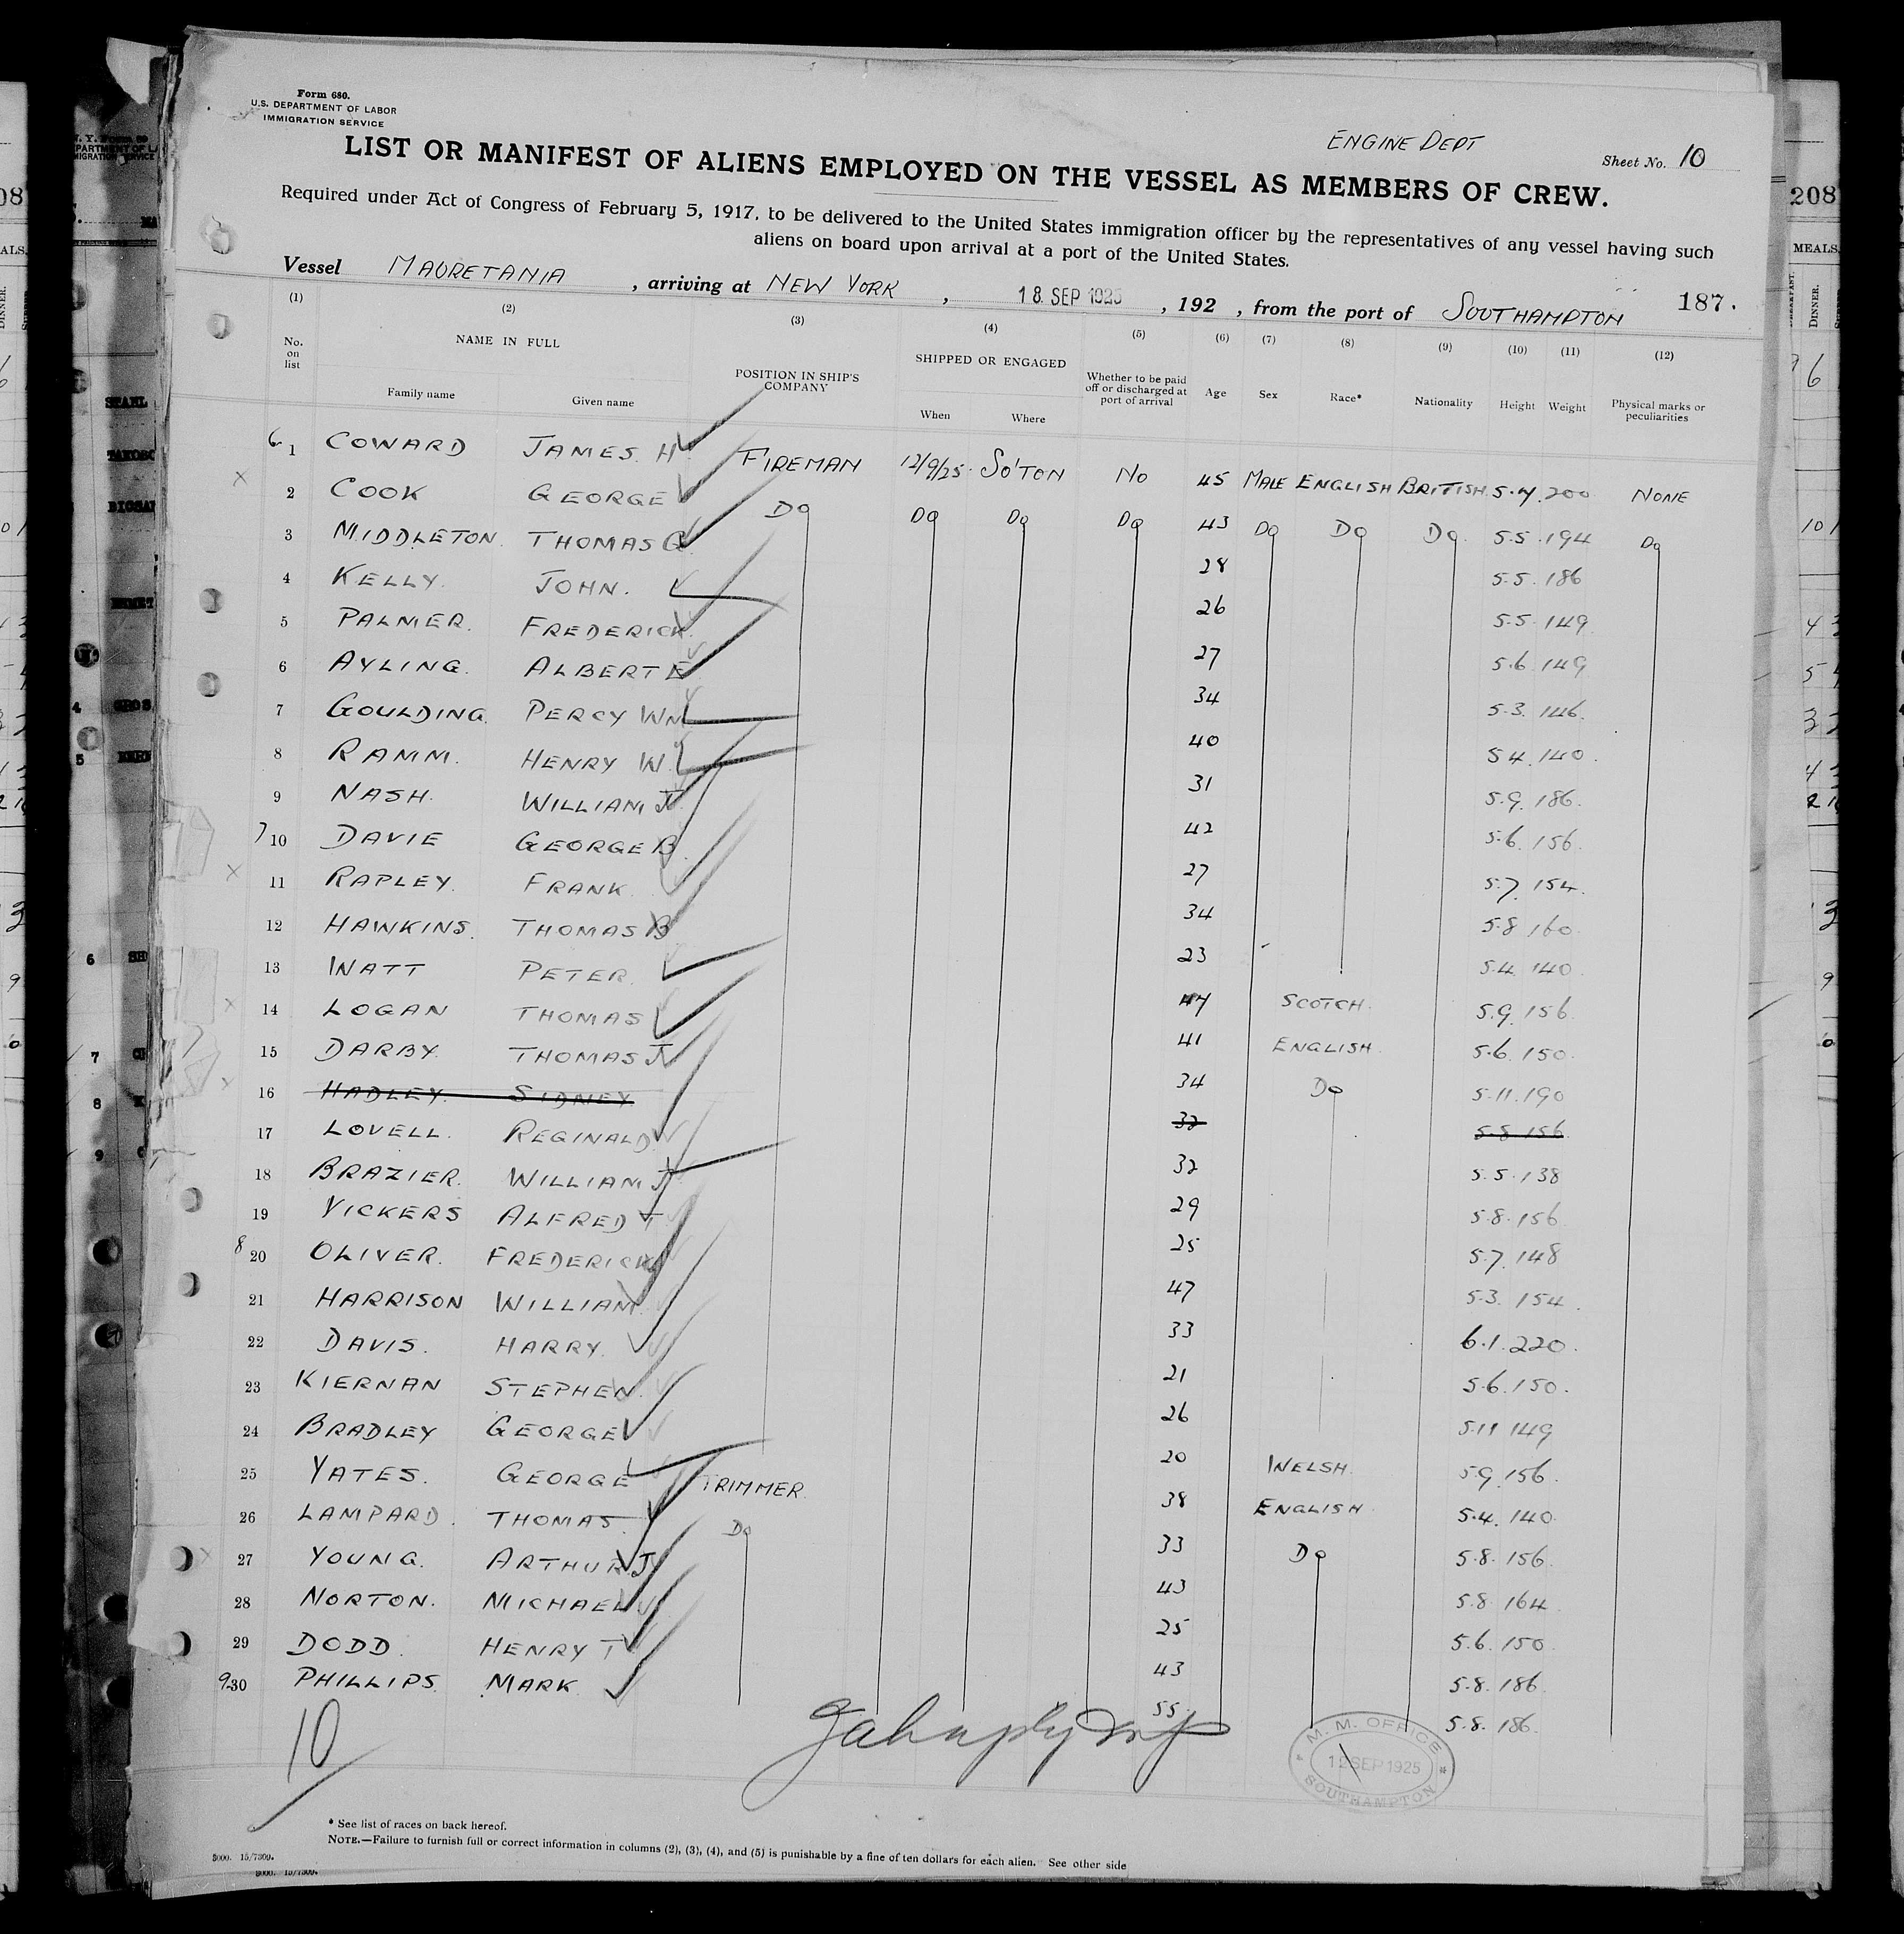 Form 680.
U.S. DEPARTMENT OF LABOR
IMMIGRATION SERVICE
ENGINE DEPT
Sheet No. 10
LIST OR MANIFEST OF ALIENS EMPLOYED ON THE VESSEL AS MEMBERS OF CREW.
Required under Act of Congress of February 5, 1917, to be delivered to the United States immigration officer by the representatives of any vessel having such
aliens on board upon arrival at a port of the United States.
Vessel MAURETANIA, arriving at NEW YORK, 18 SEP 1925, 192, from the port of SOUTHAMPTON 187.
(1) (2) (3) (4) (5) (6) (7) (8) (9) (10) (11) (12)
No. on list NAME IN FULL Family name Given name POSITION IN SHIP'S COMPANY SHIPPED OR ENGAGED When Where Whether to be paid off or discharged at port of arrival Age Sex Race* Nationality Height Weight Physical marks or peculiarities
6 1 COWARD JAMES. H. FIREMAN 12/9/25 SO'TON NO 45 MALE ENGLISH BRITISH 5.4. 200 NONE
2 COOK GEORGE DO DO DO DO 43 DO DO DO 5.5. 194 DO
3 MIDDLETON THOMAS G. 28 5.5. 186
4 KELLY. JOHN. 26 5.5. 149
5 PALMER. FREDERICK. 27 5.6. 149
6 AYLING. ALBERT E 34 5.3. 146.
7 GOULDING. PERCY WM 40 5 4. 140.
8 RAMM. HENRY W. 31 5.9. 186.
9 NASH. WILLIAM J. 42 5.6. 156.
7 10 DAVIE GEORGE B. 27 5.7. 154.
11 RAPLEY. FRANK. 34 5.8 160
12 HAWKINS. THOMAS B 23 5.4. 140.
13 WATT PETER. 47 SCOTCH. 5.9. 156.
14 LOGAN THOMAS 41 ENGLISH. 5.6. 150.
15 DARBY. THOMAS J. 34 DO 5.11. 190
16 HADLEY. SIDNEY 32 5.8 156.
17 LOVELL. REGINALD 32 5.5. 138
18 BRAZIER. WILLIAM J. 29 5.8. 156
19 VICKERS ALFRED T 25 5.7. 148
8 20 OLIVER. FREDERICK 47 5.3. 154.
21 HARRISON WILLIAM. 33 6.1. 220.
22 DAVIS. HARRY. 21 5.6. 150.
23 KIERNAN STEPHEN. 26 5.11 149
24 BRADLEY GEORGE 20 WELSH. 5.9. 156.
25 YATES. GEORGE TRIMMER. 38 ENGLISH. 5.4. 140.
26 LAMPARD. THOMAS. DO 33 DO 5.8. 156.
27 YOUNG. ARTHUR. J. 43 5.8 164.
28 NORTON. MICHAEL J 25 5.6. 150.
29 DODD. HENRY T 43 5.8. 186.
9 30 PHILLIPS. MARK. 55. 5.8. 186.
10
M. M. OFFICE
12 SEP 1925
SOUTHAMPTON
* See list of races on back hereof.
NOTE.—Failure to furnish full or correct information in columns (2), (3), (4), and (5) is punishable by a fine of ten dollars for each alien. See other side
3000. 15/7309.
208
MEALS.
DINNER.